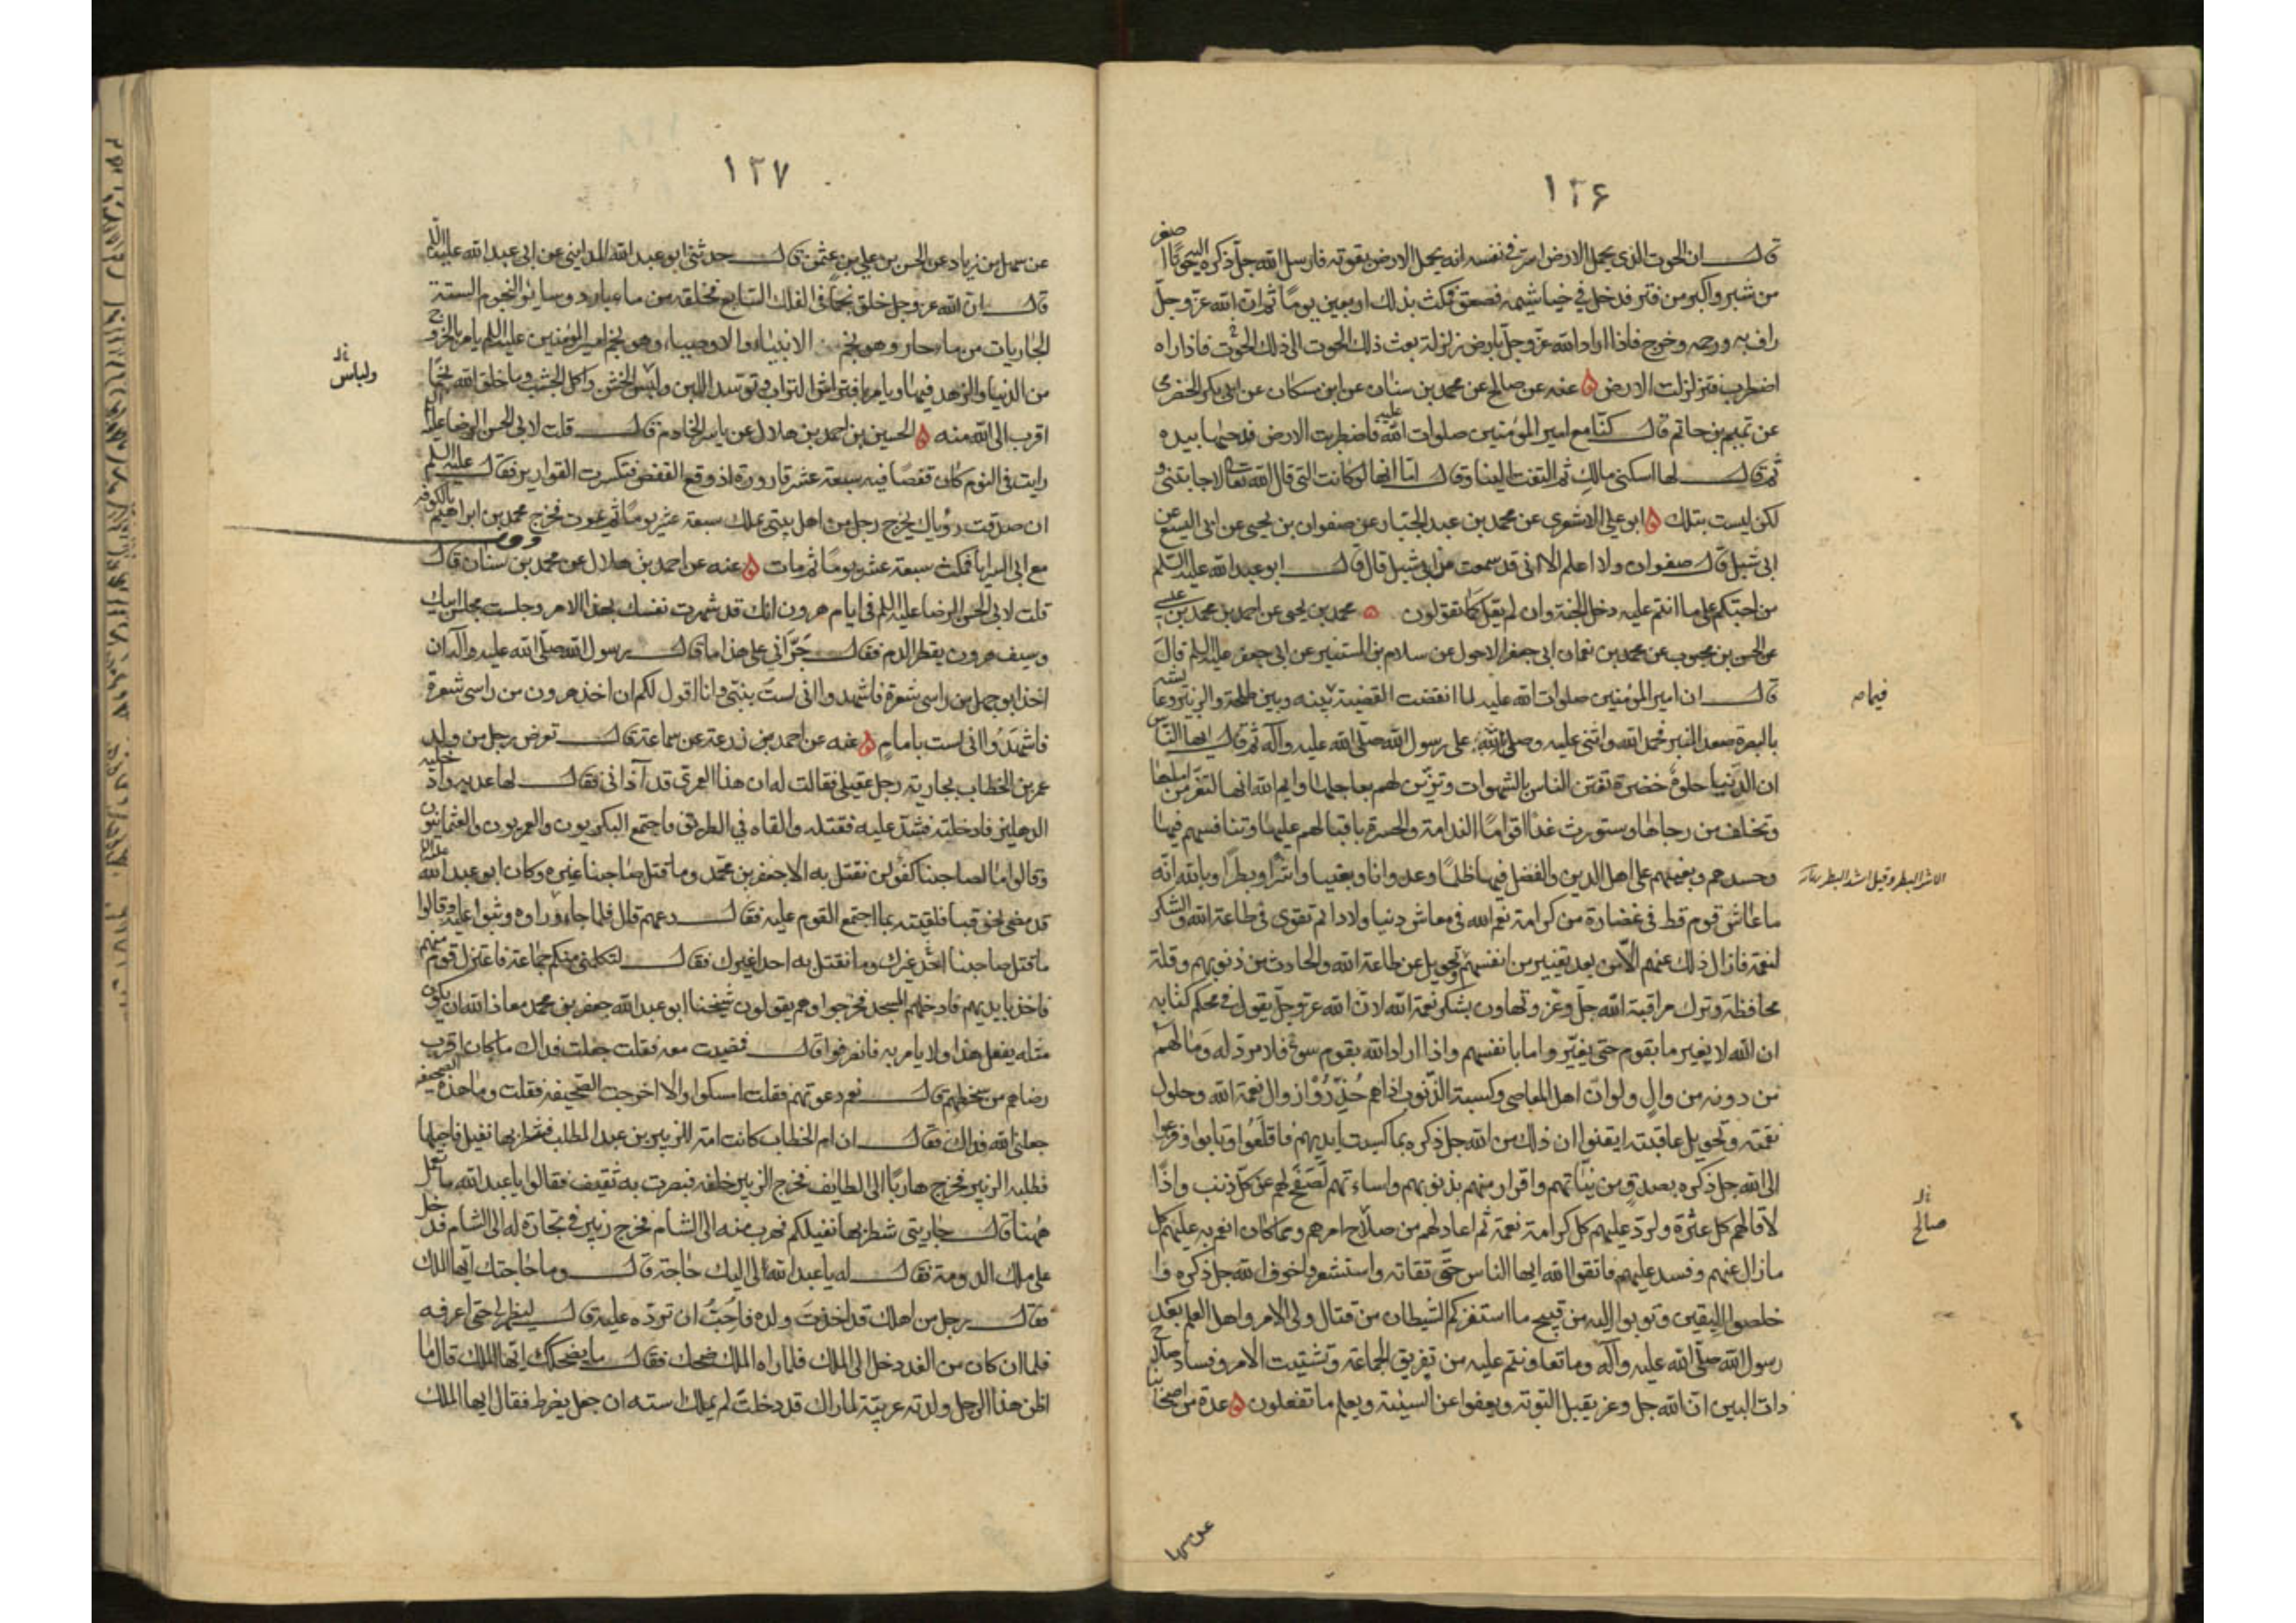 ١٢۶
قال ان الحوت الذى يحمل الارض اسر فى نفسه انه يحمل الارض بقوته فارسل الله جل ذكره اليه حوتا اصغر
من شبر واكبر من فتر فدخل فى خياشيمه فصعق فمكث بذلك اربعين يوما ثم ان الله عز وجل
راف به ورحمه وخرج فاذا اراد الله عز وجل بارض زلزلة بعث ذلك الحوت الى ذلك الحوت فاذا راه
اضطرب فتزلزلت الارض ه عنه عن صالح عن محمد بن سنان عن ابن مسكان عن ابى بكر الحضرمى
عن تميم بن حاتم قال كنا مع امير المؤمنين صلوات الله عليه فاضطربت الارض فدحيها بيده
ثم قال لها اسكنى مالك ثم التفت الينا وقال اما انها لو كانت التى قال الله تعالى لاجابتنى و
لكن ليست بتلك ه ابو على الاشعرى عن محمد بن عبد الجبار عن صفوان بن يحيى عن ابى اليسع عن
ابى شبل قال صفوان ولا اعلم الا انى قد سمعت من ابى شبل قال قال ابو عبد الله عليه السلم
من احبكم على ما انتم عليه دخل الجنة وان لم يقل كما تقولون ه محمد بن يحيى عن احمد بن محمد بن عيسى
عن الحسن بن محبوب عن محمد بن نعمان ابى جعفر الاحول عن سلام بن المستنير عن ابى جعفر عليه السلم قال
قال ان امير المؤمنين صلوات الله عليه لما انقضت القضية بينه وبين طلحة والزبير وعايشه
فيما ص
بالبصرة صعد المنبر فحمد الله واثنى عليه وصلى على رسول الله صلى الله عليه وآله ثم قال ايها الناس
ان الدنيا حلوة خضرة تفتن الناس بالشهوات وتزين لهم بعاجلها وايم الله انها لتغر من املها
وتخلف من رجاها وستورث غدا اقواما الندامة والحسرة باقبالهم عليها وتنافسهم فيها
وحسدهم وبغيهم على اهل الدين والفضل فيها ظلما وعدوانا وبغيا واشرا وبطرا وبالله انه
الاشر البطر وقيل اشد البطر
ما عاش قوم قط فى غضارة من كرامة نعم الله فى معاش دنيا ولا دائم تقوى فى طاعة الله والشكر
لنعمه فازال ذلك عنهم الا من بعد تغيير من انفسهم وتحويل عن طاعة الله والحادث من ذنوبهم وقلة
محافظة وترك مراقبة الله جل وعز وتهاون بشكر نعمة الله لان الله عز وجل يقول فى محكم كتابه
ان الله لا يغير ما بقوم حتى يغيروا ما بانفسهم واذا اراد الله بقوم سوء فلا مرد له وما لهم
من دونه من وال ولو ان اهل المعاصى وكسبة الذنوب اذا هم حذروا زوال نعمة الله وحلول
نقمته وتحويل عافيته ايقنوا ان ذلك من الله جل ذكره بما كسبت ايديهم فاقلعوا وتابوا وفزعوا
الى الله جل ذكره بصدق من نياتهم واقرار منهم بذنوبهم واساءتهم لصفح لهم عن كل ذنب واذا
لاقالهم كل عثرة ولرد عليهم كل كرامة نعمة ثم اعاد لهم من صلاح امرهم ومما كان انعم به عليهم كل
صالح
ما زال عنهم وفسد عليهم فاتقوا الله ايها الناس حق تقاته واستشعروا خوف الله جل ذكره وا
خلصوا اليقين وتوبوا اليه من قبيح ما استفزكم الشيطان من قتال ولى الامر واهل العلم بعد
رسول الله صلى الله عليه وآله وما تعاونتم عليه من تفريق الجماعة وتشتيت الامر وفساد صلاح
ذات البين ان الله جل وعز يقبل التوبة ويعفوا عن السيئة ويعلم ما تفعلون ه عدة من اصحابنا
عن سهل
١٢٧
عن سهل بن زياد عن الحسن بن على بن عثمن قال حدثنى ابو عبد الله المداينى عن ابى عبد الله عليه السلم
قال ان الله عز وجل خلق نجما فى الفلك السابع فخلقه من ماء بارد وسائر النجوم الستة
الجاريات من ماء حار وهو نجم الانبياء والاوصياء وهو نجم امير المؤمنين عليه السلم يامر بالخروج
من الدنيا والزهد فيها ويامر بافتراش التراب وتوسد اللبن ولبس الخشن واكل الجشب وما خلق الله نجما
ولباس
اقرب الى الله منه ه الحسين بن احمد بن هلال عن ياسر الخادم قال قلت لابى الحسن الرضا عليه السلم
رايت فى النوم كان قفصا فيه سبعة عشر قارورة اذ وقع القفص فتكسرت القوارير فقال عليه السلم
ان صدقت رؤياك يخرج رجل من اهل بيتى يملك سبعة عشر يوما ثم يموت فخرج محمد بن ابراهيم بالكوفه
مع ابى السرايا فمكث سبعة عشر يوما ثم مات ه عنه عن احمد بن هلال عن محمد بن سنان قال
قلت لابى الحسن الرضا عليه السلم فى ايام هرون انك قد شهرت نفسك بهذا الامر وجلست مجلس ابيك
وسيف هرون يقطر الدم فقال جرأنى على هذا ما قال رسول الله صلى الله عليه وآله ان
اخذ ابو جهل من راسى شعرة فاشهدوا انى لست بنبى وانا اقول لكم ان اخذ هرون من راسى شعرة
فاشهدوا انى لست بامام ه عنه عن احمد بن زرعة عن سماعة قال تعرض رجل من ولد
عمر بن الخطاب بجارية رجل عقيلى فقالت له ان هذا العمرى قد آذانى فقال لها عديه وادخليه
الدهليز فادخلته فشد عليه فقتله والقاه فى الطريق فاجتمع البكريون والعمريون والعثمانيون
وقالوا ما لصاحبنا كفؤ لن نقتل به الا جعفر بن محمد وما قتل صاحبنا غيره وكان ابو عبد الله عليه السلم
قد مضى نحو قبا فلقيته بما اجتمع القوم عليه فقال دعهم قال فلما جاء وراوه وثبوا عليه وقالوا
ما قتل صاحبنا احد غيرك وما نقتل به احدا غيرك فقال لتكلمنى منكم جماعة فاعتزل قوم منهم
فاخذ بايديهم فادخلهم المسجد فخرجوا وهم يقولون شيخنا ابو عبد الله جعفر بن محمد معاذ الله ان يكون
مثله يفعل هذا ولا يامر به فانصرفوا قال فمضيت معه فقلت جعلت فداك ما كان اقرب
رضاهم من سخطهم قال نعم دعوتهم فقلت امسكوا والا اخرجت الصحيفة فقلت وما هذه الصحيفة
جعلنى الله فداك فقال ان ام الخطاب كانت امة للزبير بن عبد المطلب فشطر بها نفيل فاحبلها
فطلبه الزبير فخرج هاربا الى الطايف فخرج الزبير خلفه فبصرت به ثقيف فقالوا يا عبد الله ما تعمل
ههنا قال جاريتى شطر بها نفيلكم فهرب منه الى الشام فخرج زبير فى تجارة له الى الشام فدخل
على ملك الدومة فقال له يا عبد الله لى اليك حاجة قال وما حاجتك ايها الملك
فقال رجل من اهلك قد اخذت ولده فاحب ان ترده عليه قال ليظهر لى حتى اعرفه
فلما ان كان من الغد دخل الى الملك فلما راه الملك ضحك فقال ما يضحكك ايها الملك قال ما
اظن هذا الرجل ولدته عربية لما راك قد دخلت لم يملك استه ان جعل يضرط فقال ايها الملك